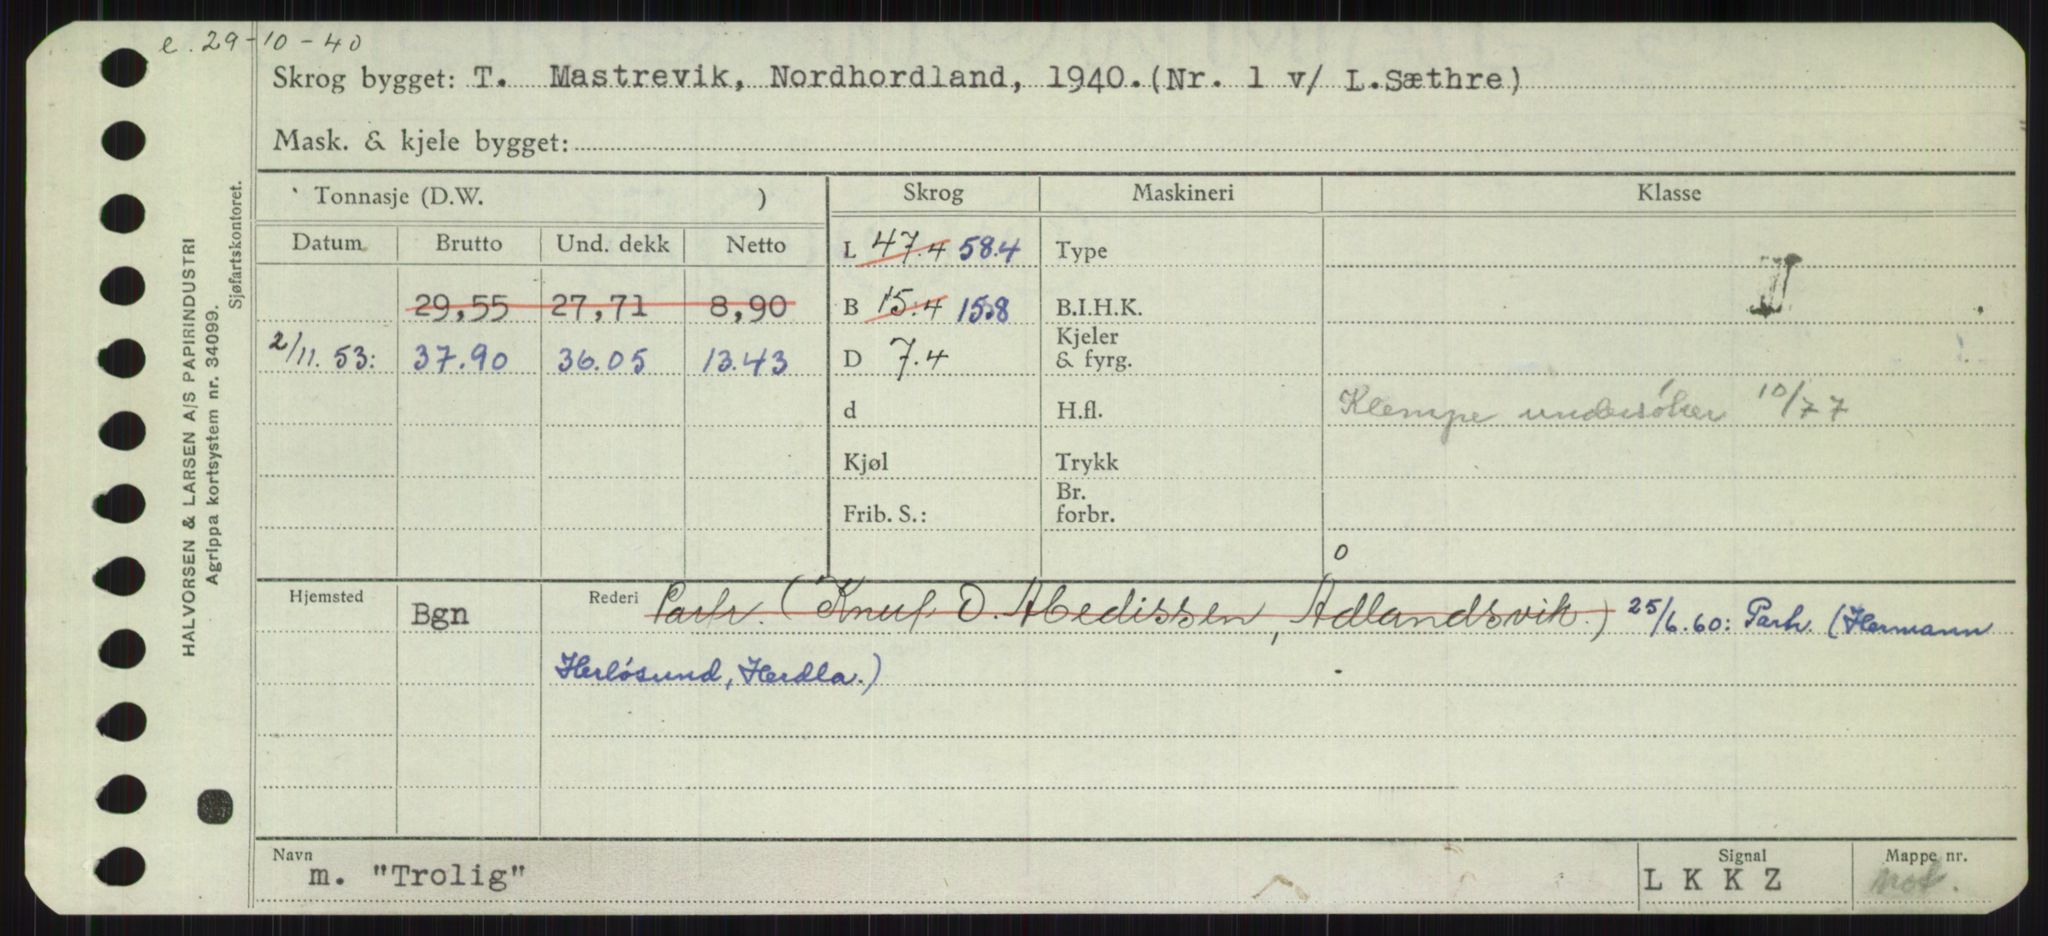 e. 29-10-40
Skrog bygget: T. Mastrevik, Nordhordland, 1940. (Nr. 1 v/ L.Sæthre)
Mask. & kjele bygget:
HALVORSEN & LARSEN A/S PAPIRINDUSTRI
Agrippa kortsystem nr. 34099.
Sjøfartskontoret.
Tonnasje (D.W. )
Skrog Maskineri Klasse
Datum Brutto Und. dekk Netto
L 47.4 58.4 Type
29,55 27,71 8,90 B 15.4 15.8 B.I.H.K.
2/11. 53: 37.90 36.05 13.43 D 7.4 Kjeler & fyrg.
d H.fl. Klempe undersøker 10/77
Kjøl Trykk
Frib. S.: Br. forbr.
Hjemsted Bgn Rederi Partr. (Knut O. Abedissen, Ådlandsvik.) 25/6.60: Partr. (Hermann
Herløsund, Herdla.)
Navn Signal Mappe nr.
m. "Trolig" L K K Z